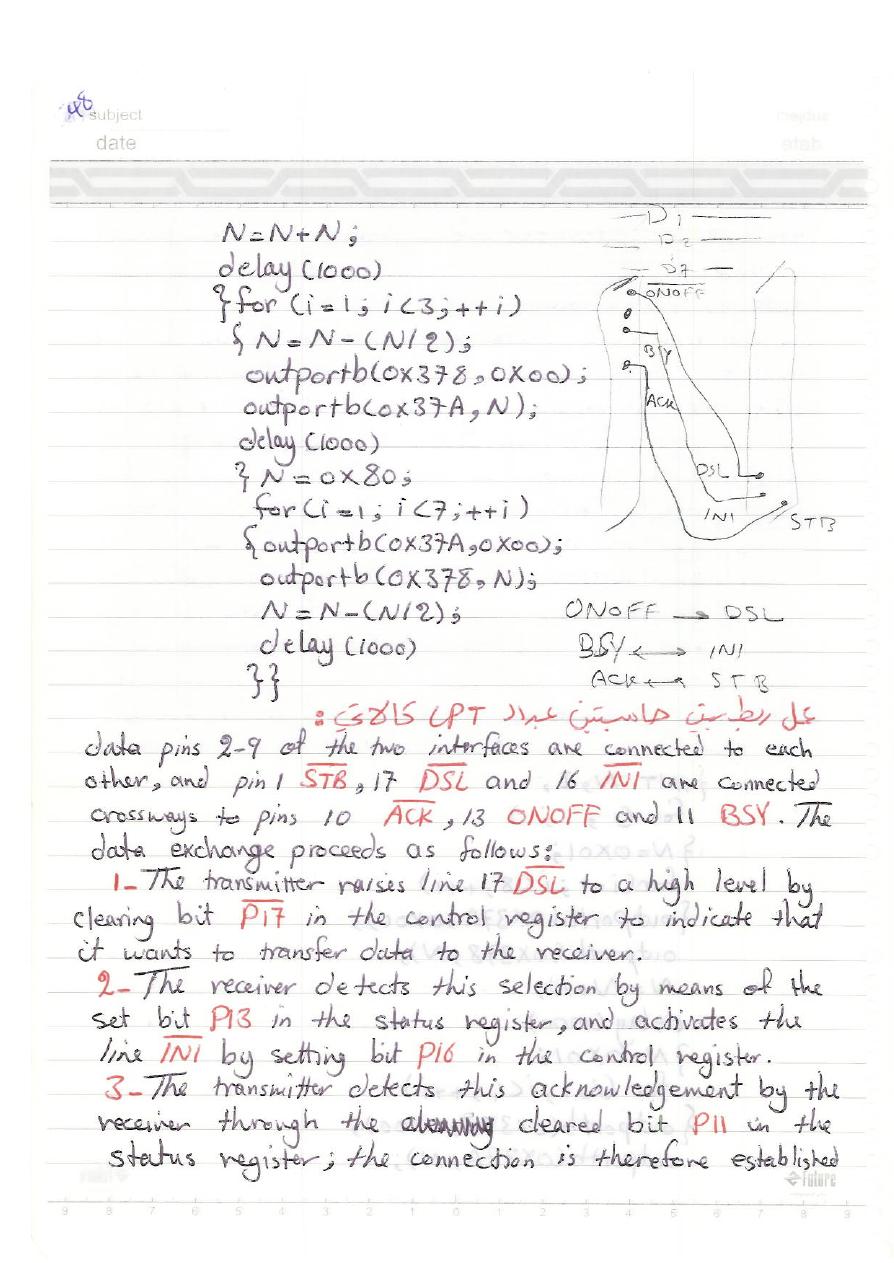 48
subject
date
N=N+N;
delay(1000)
}for (i=1; i<3;++i)
{ N=N-(N/2);
outportb(0x378,0x00);
outportb(0x37A,N);
delay(1000)
} N=0x80;
for(i=1; i<7;++i)
{outportb(0x37A,0x00);
outportb(0x378,N);
N=N-(N/2);
delay(1000)
}}
D1
D2
D7
ONOFF
BSY
ACK
DSL
INI
STB
ONOFF → DSL
BSY ↔ INI
ACK ↔ STB
عمل ربط بين حاسبتين عبر LPT كالاتي:
data pins 2-9 of the two interfaces are connected to each
other, and pin 1 S̅T̅B̅, 17 D̅S̅L̅ and 16 I̅N̅I̅ are connected
crossways to pins 10 A̅C̅K̅, 13 ONOFF and 11 BSY. The
data exchange proceeds as follows:
1- The transmitter raises line 17 D̅S̅L̅ to a high level by
clearing bit P̅1̅7̅ in the control register to indicate that
it wants to transfer data to the receiver.
2- The receiver detects this selection by means of the
set bit P13 in the status register, and activates the
line I̅N̅I̅ by setting bit P16 in the control register.
3- The transmitter detects this acknowledgement by the
receiver through the cleared bit P11 in the
status register; the connection is therefore established
future
9 8 7 6 5 4 3 2 1 0 1 2 3 4 5 6 7 8 9